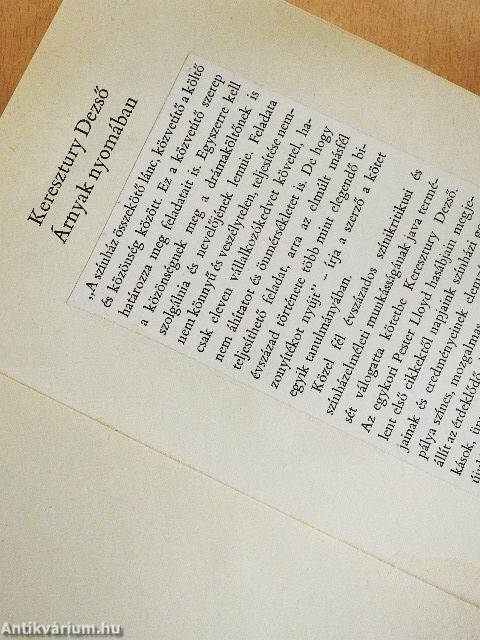 Keresztury Dezső
Árnyak nyomában
„A színház összekötő lánc, közvetítő a költő
és közönség között. Ez a közvetítő szerep
határozza meg feladatait is. Egyszerre kell
a közönségnek meg a drámaköltőnek is
szolgálnia és nevelőjének lennie. Feladata
nem könnyű és veszélytelen, teljesítése nem-
csak eleven vállalkozókedvet követel, ha-
nem álhítatot és önmérsékletet is. De hogy
teljesíthető feladat, arra az elmúlt másfél
évszázad története több mint elegendő bi-
zonyítékot nyújt." – írja a szerző a kötet
egyik tanulmányában.
Közel fél évszázados színikritikusi és
színházelméleti munkásságának java termé-
sét válogatta kötetbe Keresztury Dezső.
Az egykori Pester Lloyd hasábjain megje-
lent első cikkektől napjaink színházi
jainak és eredményeinek
pálya színes, mozgalmas
állít az érdeklődő
kások,
Antikvárium.hu